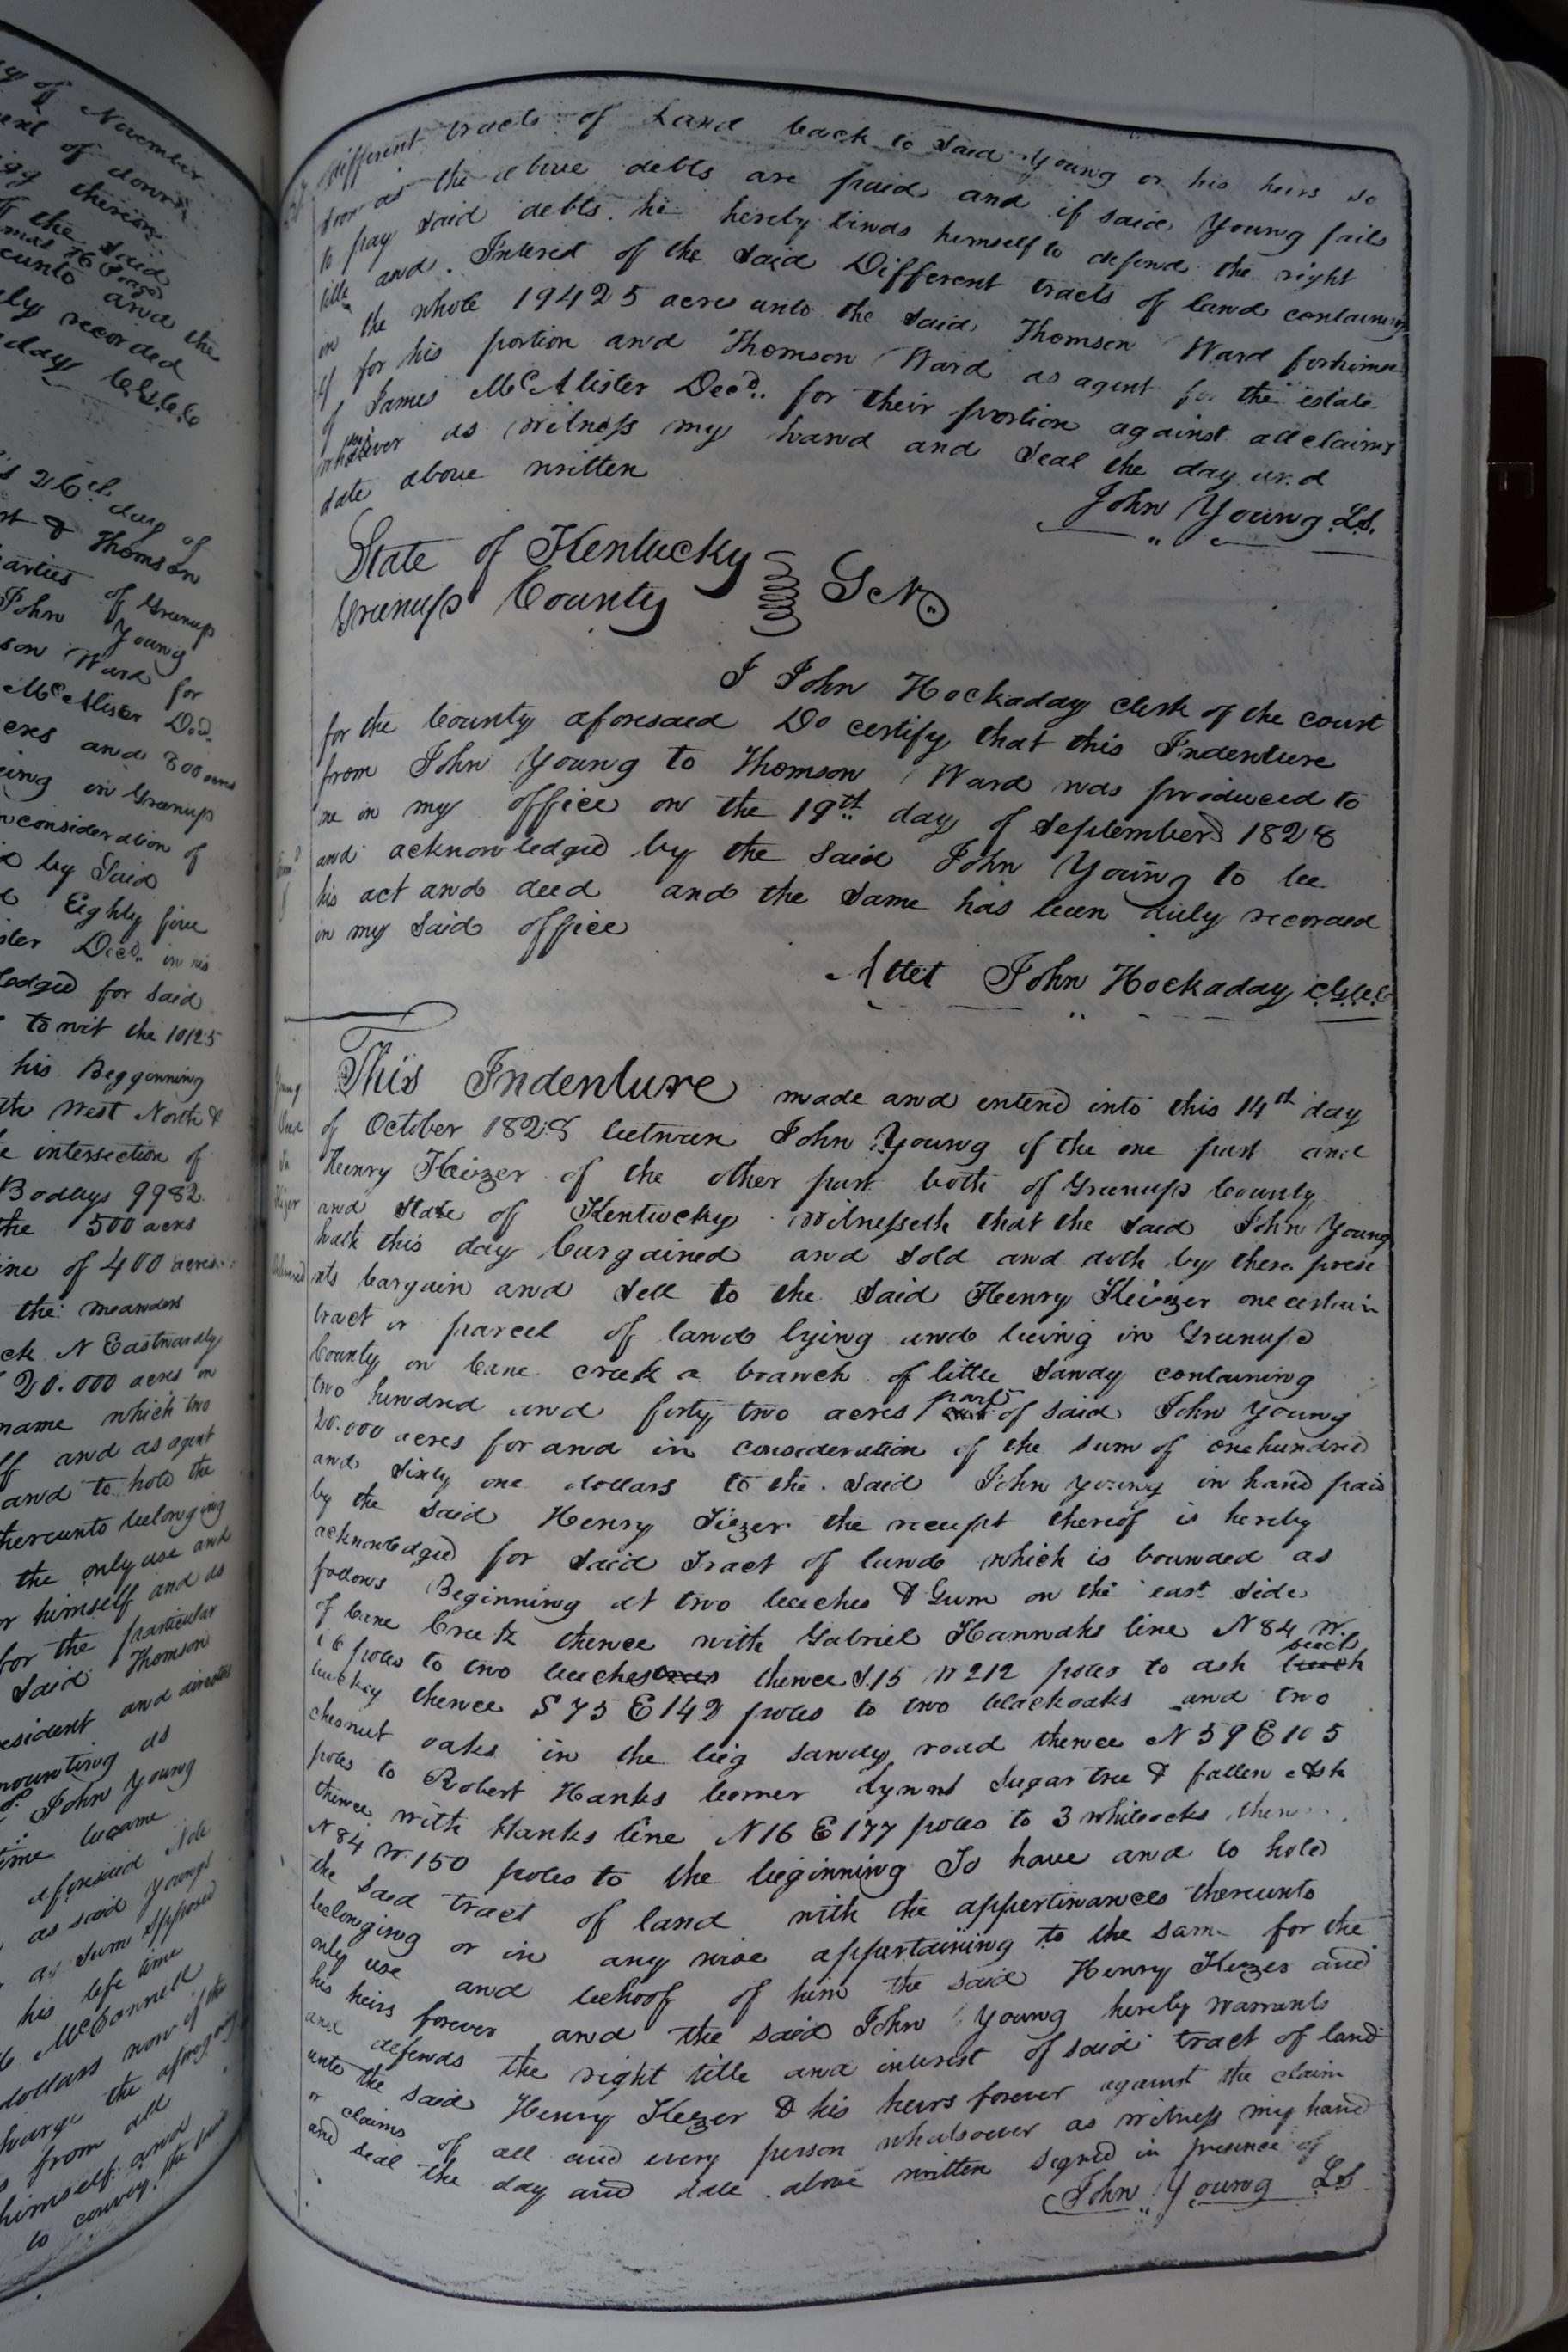 y of November
of down
thereon
the said
unto and the
ely recorded
day C.G.C.C
s 26th day of
& Thomson
arties of Greenup
John Young
son Ward for
McAlister Decd.
cres and 800 acres
eing in Greenup
consideration of
d by Said
Eighty five
ister Decd. in his
ledged for said
to wit the 10125
his Beggonning
West North &
intersection of
Bodleys 9982
the 500 acres
ine of 400 acres
the meanders
ck N Eastwardly
20.000 acres in
name which two
ff and as agent
and to hold the
hereunto belonging
the only use and
or himself and as
for the particular
said Thomson
esident and
mounting as
John Young
ime became
aforesaid
as said Youngs
as Sum Opposed
his life time
McConnell
dollars now of the
harge the aforegoing
from all
himself and
to convey the
different tracts of Land back to Said Young or his heirs so
soon as the above debts are paid and if said Young fails
to pay said debts he hereby binds himself to defend the right
title and Interest of the said Different tracts of land containing
in the whole 19425 acres unto the said Thomson Ward forhimse
lf for his portion and Thomson Ward as agent for the estate
of James McAlister Decd. for their portion against all claims
whatsoever as witness my hand and Seal the day and
date above written
John Young L.S.
State of Kentucky
Greenup County Sct.
I John Hockaday clerk of the court
for the County aforesaid Do certify that this Indenture
from John Young to Thomson Ward was produced to
me in my office on the 19th day of September 1828
and acknowledged by the said John Young to be
his act and deed and the same has been duly recorded
in my said office
Attet John Hockaday C.G.C.C
Young
Deed
To
Keizer
Delivered
This Indenture made and enterd into this 14th day
of October 1828 between John Young of the one part and
Henry Keizer of the other part both of Greenup County
and State of Kentucky Witnesseth that the said John Young
hath this day bargained and sold and doth by these prese
nts bargain and sell to the said Henry Keizer one certain
tract or parcel of land lying and being in Greenup
County on Cane creek a branch of little Sandy containing
two hundred and forty two acres part of said John Young
20.000 acres for and in consideration of the sum of one hundred
and Sixty one dollars to the said John young in hand paid
by the said Henry Kiezer the receipt thereof is hereby
acknowledged for said Tract of land which is bounded as
follows Beginning at two beeches & Gum on the east side
of Cane Creek thence with Gabriel Hannahs line N 84 W.
poles to two beeches thence S.15 W 212 poles to ash beech
buckey thence S 75 E 142 poles to two blackoaks and two
chesnut oaks in the big sandy road thence N 59 E 105
poles to Robert Hanks corner Lynns Sugar tree & fallen Ash
thence with Hanks line N 16 E 177 poles to 3 whiteocks then
N 84 W. 150 poles to the beginning To have and to hold
the said tract of land with the appertinances thereunto
belonging or in any wise appertaining to the same for the
only use and behoof of him the said Henry Keizer and
his heirs forever and the said John Young hereby warrants
and defends the right title and interest of said tract of land
unto the said Henry Keizer & his heirs forever against the claim
or claims of all and every person whatsoever as witness my hand
and seal the day and date above written signed in presence of
John Young L.S